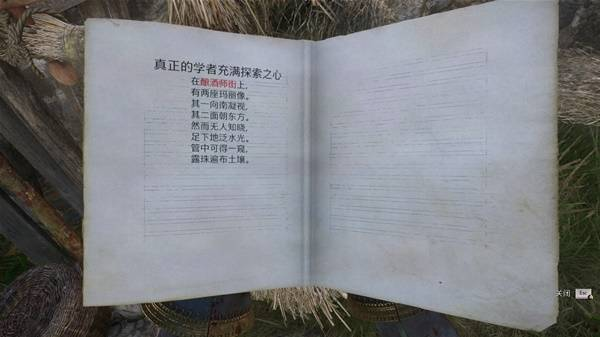 真正的学者充满探索之心
在酿酒师街上，
有两座玛丽像。
其一向南凝视，
其二面朝东方。
然而无人知晓，
足下地泛水光。
管中可得一窥，
露珠遍布土壤。
关闭 Esc